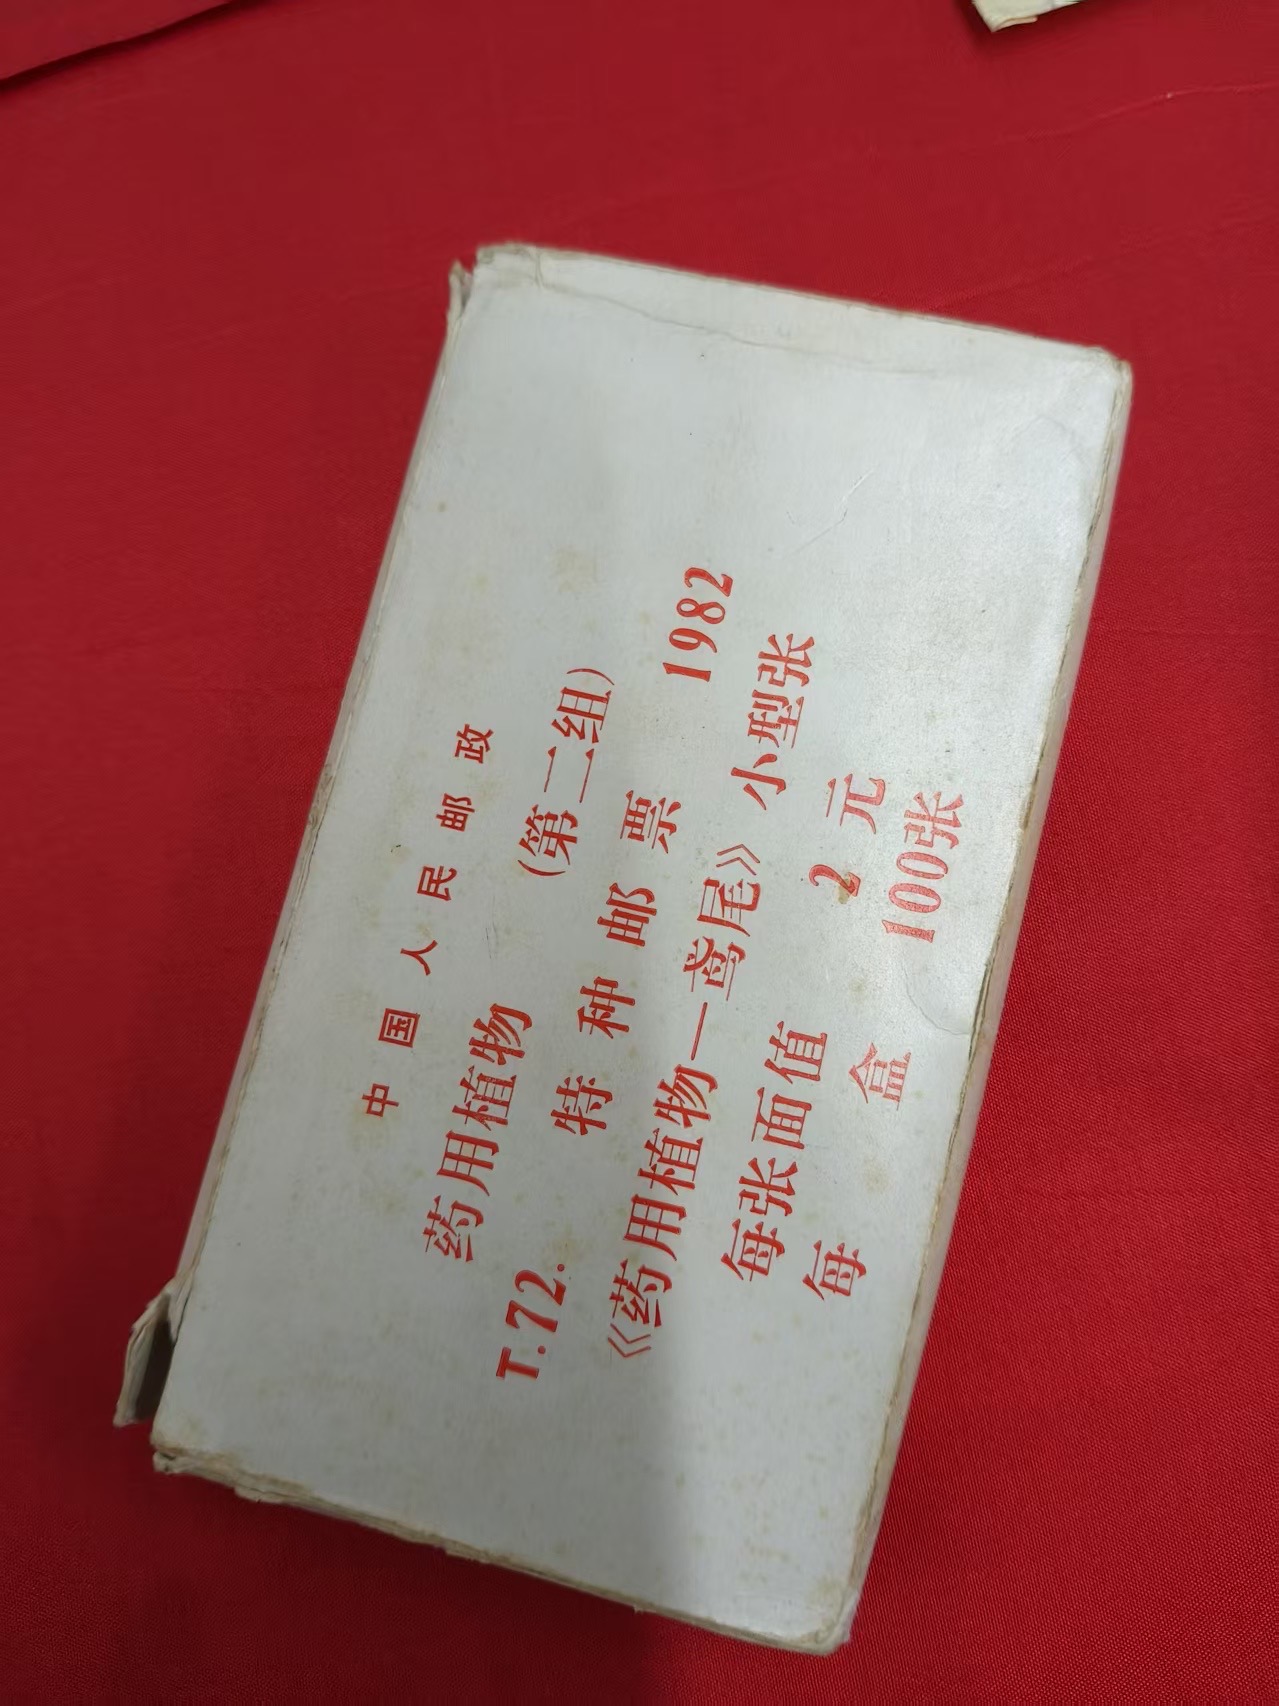 中国人民邮政
药用植物（第二组）
T.72.特种邮票 1982
《药用植物—鸢尾》小型张
每张面值 2 元
每 盒 100张